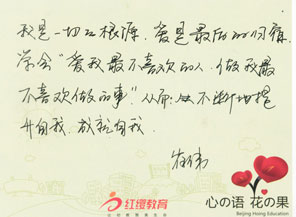 我是一切的根源，爱是最后的归宿，
学会“爱我最不喜欢的人，做我最
不喜欢做的事”从而 不断地提
升自我，成就自我。
红缨教育
心の语 花の果
Beijing Hong Education